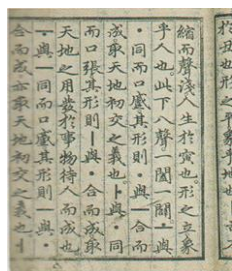 縮而聲淺人生於寅也。形之立象
乎人也。此下八聲一闔一闢。ㅗ與
ㆍ同而口蹙其形則ㆍ與ㅡ合而
成取天地初交之義也ㅏ與ㆍ同
而口張其形則ㅣ與ㆍ合而成取
天地之用發於事物待人而成也
ㅜ與ㅡ同而口蹙其形則ㅡ與ㆍ
合而成亦取天地初交之義也ㅓ